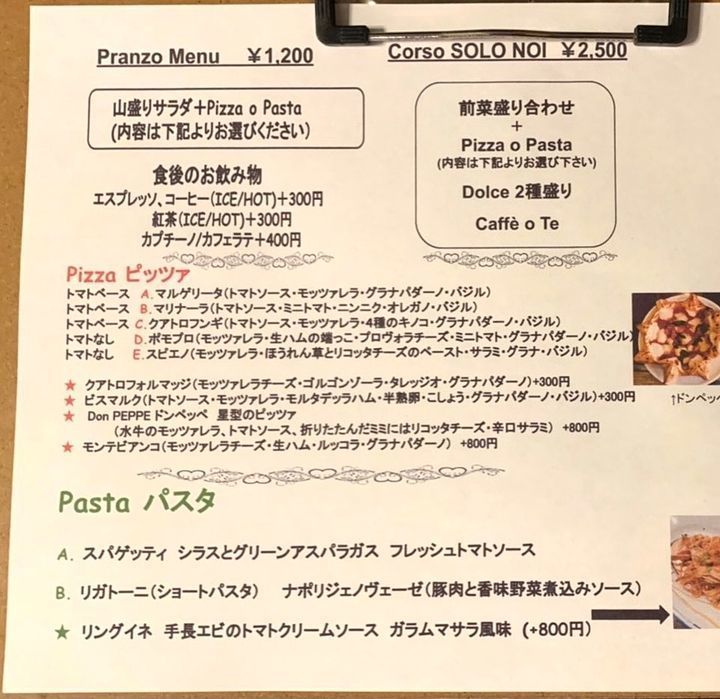 Pranzo Menu ¥1,200
山盛りサラダ+Pizza o Pasta
(内容は下記よりお選びください)
食後のお飲み物
エスプレッソ、コーヒー(ICE/HOT)+300円
紅茶(ICE/HOT)+300円
カプチーノ/カフェラテ+400円
Corso SOLO NOI ¥2,500
前菜盛り合わせ
+
Pizza o Pasta
(内容は下記よりお選び下さい)
Dolce 2種盛り
Caffè o Te
Pizza ピッツァ
トマトベース A.マルゲリータ(トマトソース・モッツァレラ・グラナパダーノ・バジル)
トマトベース B.マリナーラ(トマトソース・ミニトマト・ニンニク・オレガノ・バジル)
トマトベース C.クアトロフンギ(トマトソース・モッツァレラ・4種のキノコ・グラナパダーノ・バジル)
トマトなし D.ポモプロ(モッツァレラ・生ハムの端っこ・プロヴォラチーズ・ミニトマト・グラナパダーノ・バジル)
トマトなし E.スピエノ(モッツァレラ・ほうれん草とリコッタチーズのペースト・サラミ・グラナ・バジル)
★ クアトロフォルマッジ(モッツァレラチーズ・ゴルゴンゾーラ・タレッジオ・グラナパダーノ)+300円
★ ビスマルク(トマトソース・モッツァレラ・モルタデッラハム・半熟卵・こしょう・グラナパダーノ・バジル)+300円
★ Don PEPPE ドンペッペ 星型のピッツァ
(水牛のモッツァレラ、トマトソース、折りたたんだミミにはリコッタチーズ・辛口サラミ) +800円
★ モンテビアンコ(モッツァレラチーズ・生ハム・ルッコラ・グラナパダーノ) +800円
↑ドンペッペ
Pasta パスタ
A. スパゲッティ シラスとグリーンアスパラガス フレッシュトマトソース
B. リガトーニ(ショートパスタ) ナポリジェノヴェーゼ(豚肉と香味野菜煮込みソース)
★ リングイネ 手長エビのトマトクリームソース ガラムマサラ風味 (+800円)